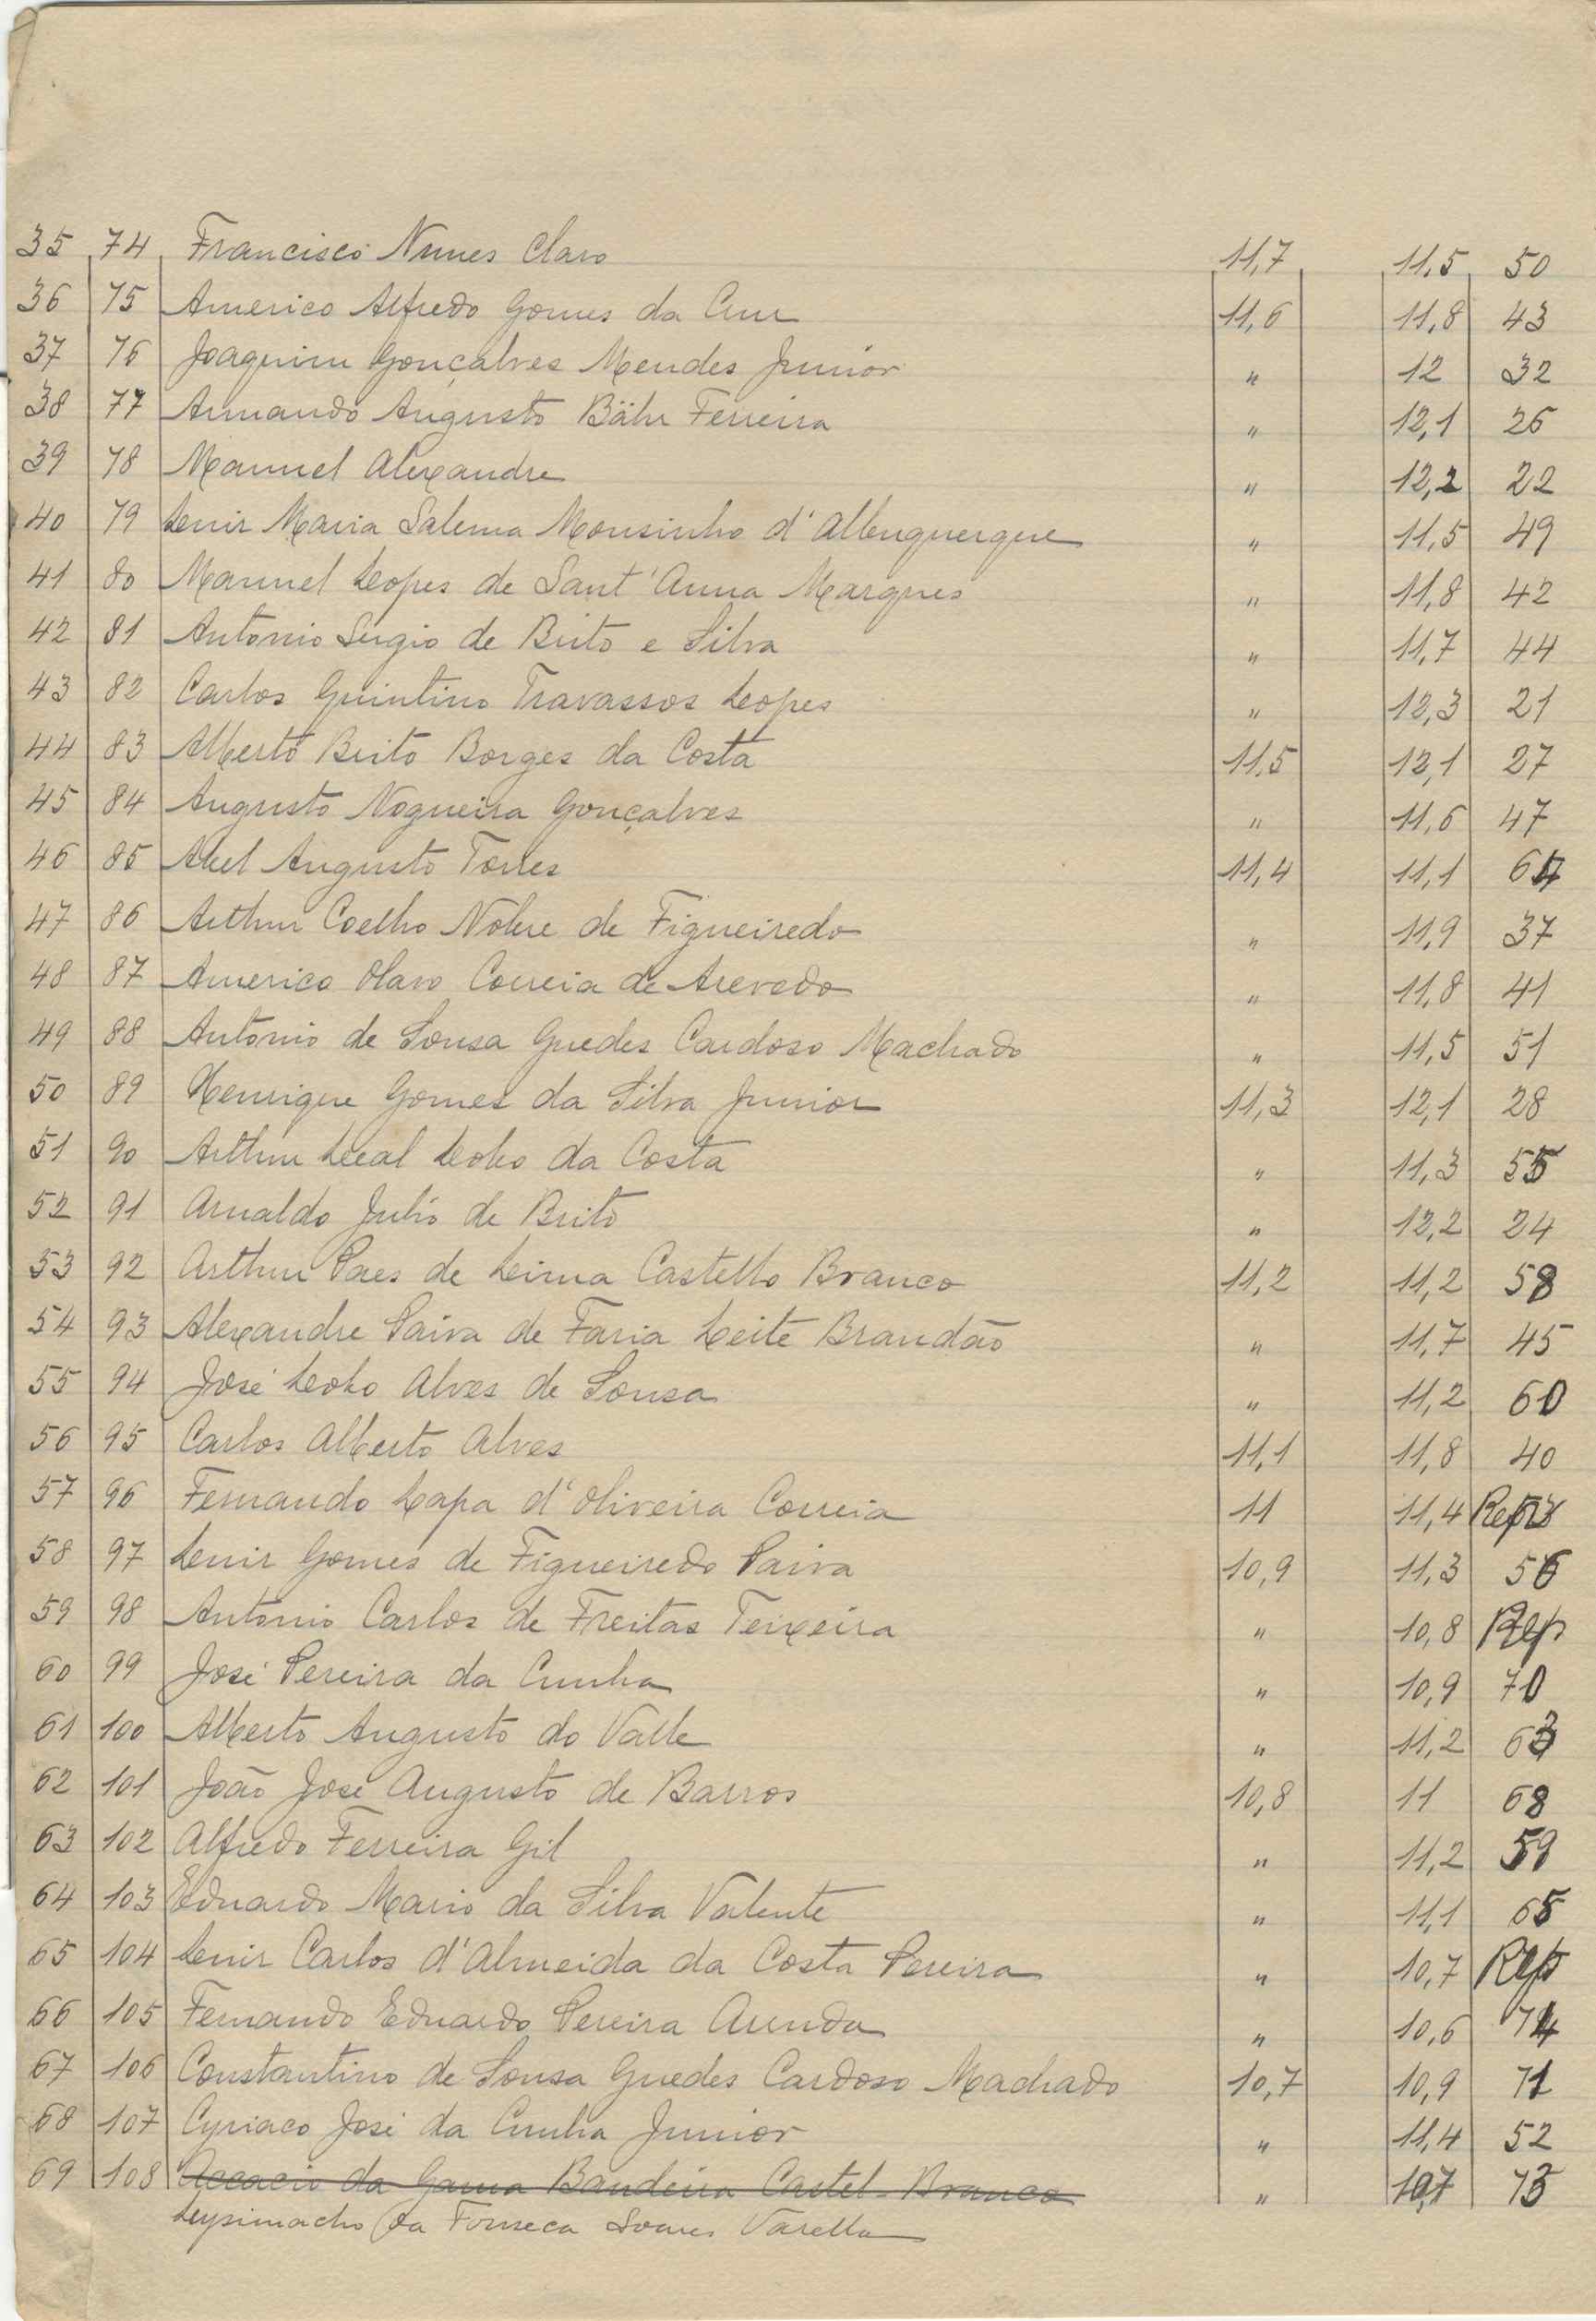 35 74 Francisco Nunes Claro 11,7 11,5 50
36 75 Americo Alfredo Gomes da 11,6 11,8 43
37 76 Joaquim Gonçalves Mendes Junior " 12 32
38 77 Armando Augusto Bähr Ferreira " 12,1 26
39 78 Manuel Alexandre " 12,2 22
40 79 Luiz Maria Salema Mousinho d'Albuquerque " 11,5 49
41 80 Manuel Lopes de Sant'Anna Marques " 11,8 42
42 81 Antonio Sergio de Brito e Silva " 11,7 44
43 82 Carlos Quintino Travassos Lopes " 12,3 21
44 83 Alberto Brito Borges da Costa 11,5 12,1 27
45 84 Augusto Nogueira Gonçalves " 11,6 47
46 85 Abel Augusto Torres 11,4 11,1 64
47 86 Arthur Coelho Nobre de Figueiredo " 11,9 37
48 87 Americo Olavo Correia de Azevedo " 11,8 41
49 88 Antonio de Sousa Guedes Cardoso Machado " 11,5 51
50 89 Henrique Gomes da Silva Junior 11,3 12,1 28
51 90 Arthur Leal Lobo da Costa " 11,3 55
52 91 Arnaldo Julio de Brito " 12,2 24
53 92 Arthur Paes de Lima Castello Branco 11,2 11,2 58
54 93 Alexandre Paiva de Faria Leite Brandão " 11,7 45
55 94 José Lobo Alves de Sousa " 11,2 60
56 95 Carlos Alberto Alves 11,1 11,8 40
57 96 Fernando Lapa d'Oliveira Correia 11 11,4
58 97 Luiz Gomes de Figueiredo Paiva 10,9 11,3 56
59 98 Antonio Carlos de Freitas Teixeira " 10,8 Rep
60 99 José Pereira da Cunha " 10,9 70
61 100 Alberto Augusto do Valle " 11,2 63
62 101 João José Augusto de Barros 10,8 11 68
63 102 Alfredo Ferreira Gil " 11,2 59
64 103 Eduardo Mario da Silva Valente " 11,1 65
65 104 Luiz Carlos d'Almeida da Costa Pereira " 10,7 Rep
66 105 Fernando Eduardo Pereira " 10,6 74
67 106 Constantino de Sousa Guedes Cardoso Machado 10,7 10,9 71
68 107 Cyriaco José da Cunha Junior " 11,4 52
69 108 Accacio da Gama Bandeira Castel-Branco " 10,7 73
Lysimacho da Fonseca Soares Varella